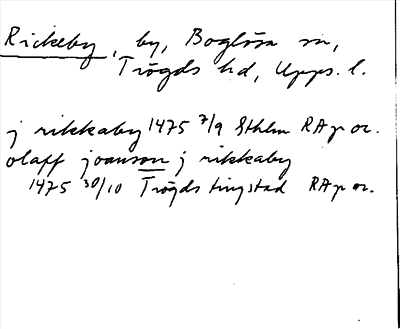 Rickeby, by, Boglösa sn,
Trögds hd, Upps. l.
j rikkaby 1475 7/9 Sthlm RAp or.
olaff joansson j rikkaby
1475 30/10 Trögds tingstad RAp or.